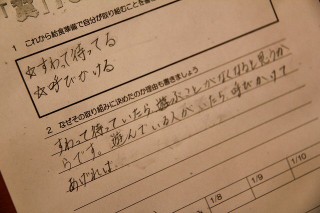 1 これから給食準備で自分が取り組むことを書き
☆すわって待ってる
☆呼びかける
2 なぜその取り組みに決めたのか理由も書きましょう
すわって待っていたら遊ぶことがなくなると思うか
らです。遊んでいる人がいたら呼びかけて
あげれば、
1/8
1/9
1/10